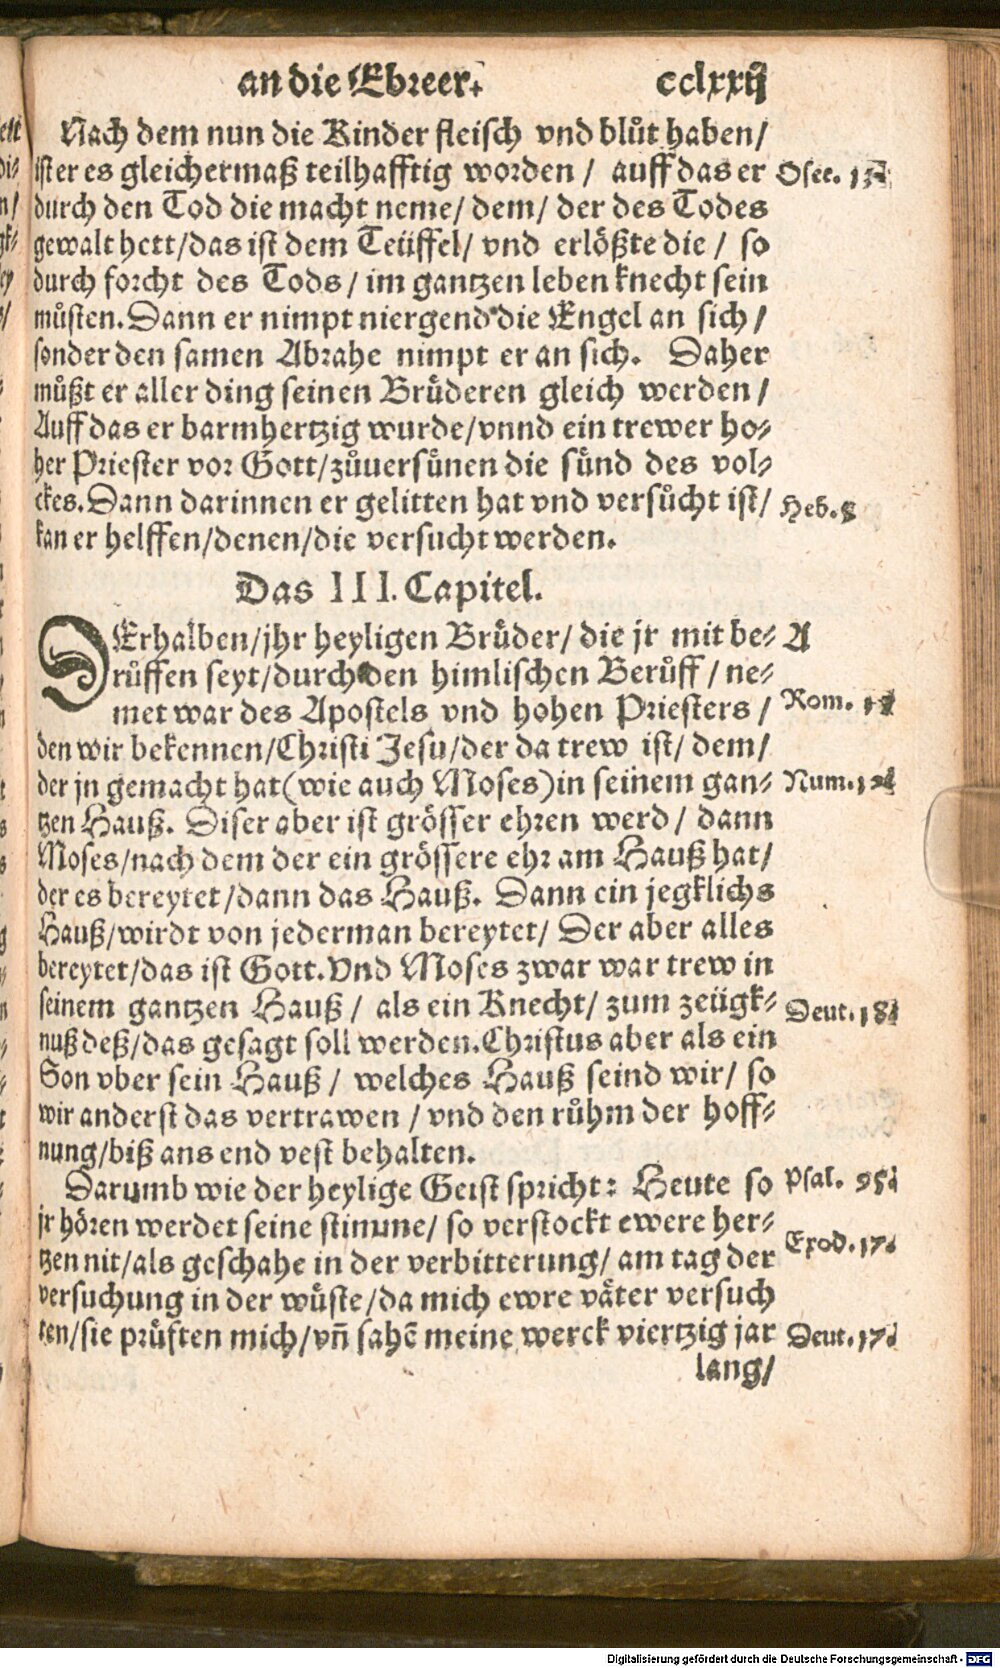 an die Ebreer. cclxxij
Nach dem nun die Kinder fleisch vnd blůt haben/
ist er es gleichermaß teilhafftig worden / auff das er Osee. 13.
durch den Tod die macht neme/ dem/ der des Todes
gewalt hett/das ist dem Teüffel/ vnd erlößte die / so
durch forcht des Tods / im gantzen leben knecht sein
můsten. Dann er nimpt niergend die Engel an sich /
sonder den samen Abrahe nimpt er an sich. Daher
můßt er aller ding seinen Brüderen gleich werden /
Auff das er barmhertzig wurde/vnnd ein trewer ho⸗
her Priester vor Gott/zůuersünen die sünd des vol⸗
ckes. Dann darinnen er gelitten hat vnd versůcht ist/ Heb.
kan er helffen/denen/die versucht werden.
Das III. Capitel.
DErhalben/jhr heyligen Brüder/ die jr mit be⸗ A
růffen seyt/durch den himlischen Berůff / ne⸗
met war des Apostels vnd hohen Priesters / Rom.
den wir bekennen/Christi Jesu/der da trew ist/ dem/
der jn gemacht hat (wie auch Moses) in seinem gan⸗ Num.
tzen Hauß. Diser aber ist grösser ehren werd / dann
Moses/nach dem der ein grössere ehr am Hauß hat/
der es bereytet/dann das Hauß. Dann ein jegklichs
Hauß/wirdt von jederman bereytet/ Der aber alles
bereytet/das ist Gott. Vnd Moses zwar war trew in
seinem gantzen Hauß / als ein Knecht/ zum zeügk⸗ Deut. 18.
nuß deß/das gesagt soll werden. Christus aber als ein
Son vber sein Hauß / welches Hauß seind wir/ so
wir anderst das vertrawen / vnd den růhm der hoff⸗
nung/biß ans end vest behalten.
Darumb wie der heylige Geist spricht: Heute so Psal. 95.
jr hören werdet seine stimme/ so verstockt ewere her⸗
tzen nit/als geschahe in der verbitterung/ am tag der Exod. 17.
versuchung in der wüste/da mich ewre väter versuch
ten/sie prüften mich/vñ sahẽ meine werck viertzig jar Deut. 17.
lang/
Digitalisierung gefördert durch die Deutsche Forschungsgemeinschaft - DFG